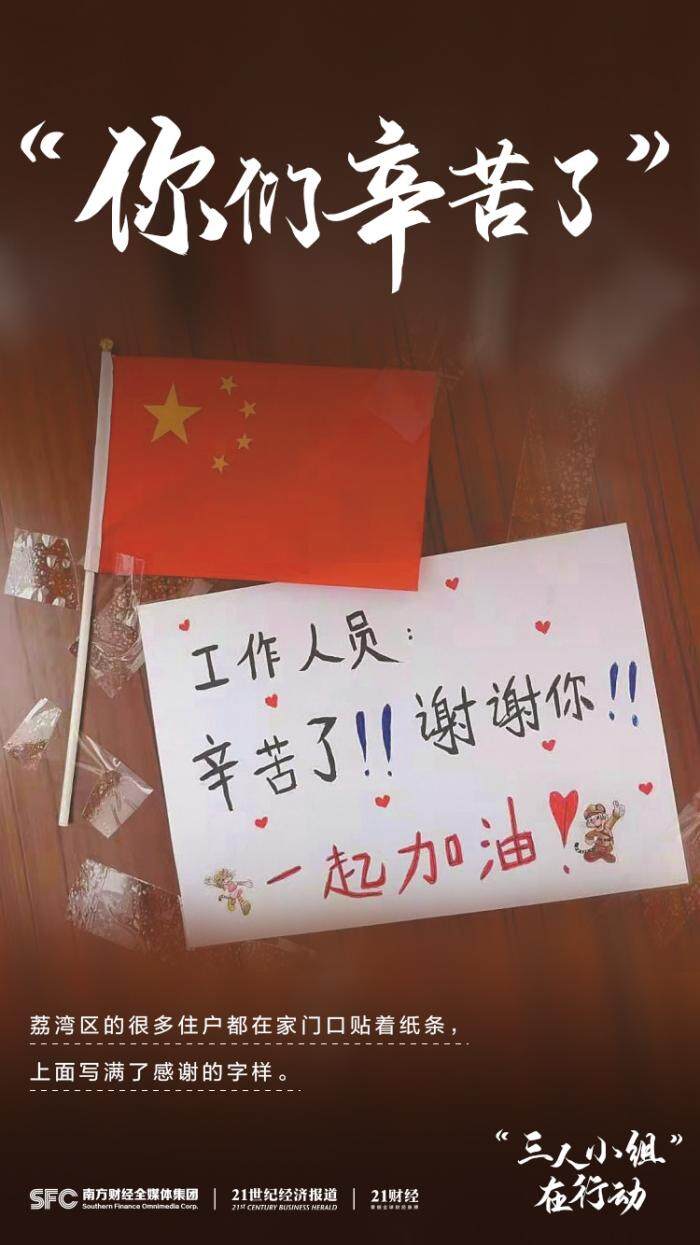 “你们辛苦了”
工作人员：
辛苦了!! 谢谢你!!
一起加油!
荔湾区的很多住户都在家门口贴着纸条，
上面写满了感谢的字样。
“三人小组”
在行动
SFC 南方财经全媒体集团 | 21世纪经济报道 | 21财经
Southern Finance Omnimedia Corp. 21ST CENTURY BUSINESS HERALD